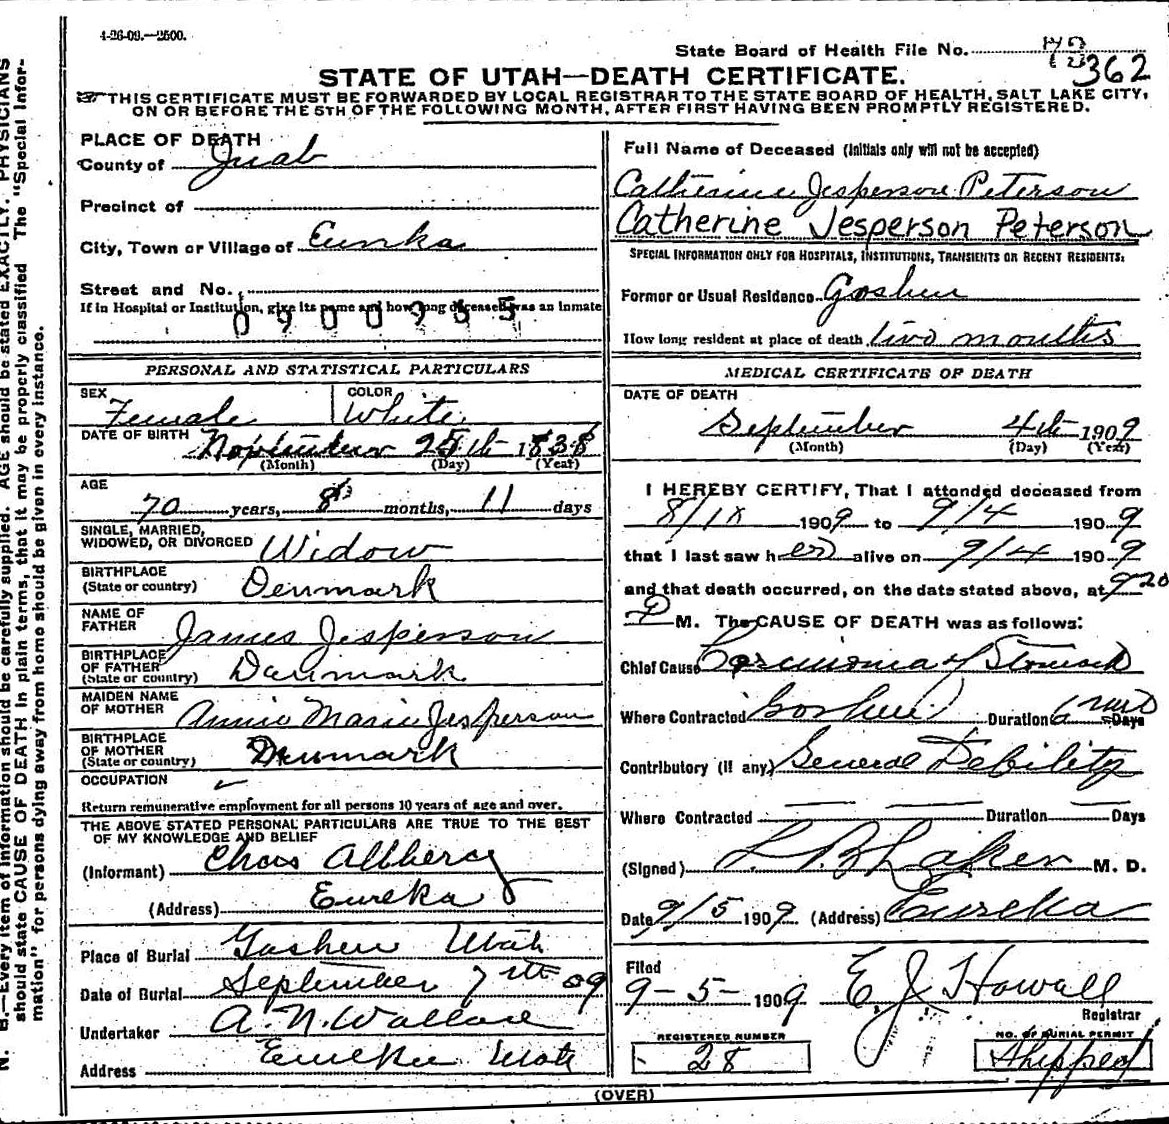 4-26-09.—2500.
State Board of Health File No. 362
STATE OF UTAH—DEATH CERTIFICATE.
THIS CERTIFICATE MUST BE FORWARDED BY LOCAL REGISTRAR TO THE STATE BOARD OF HEALTH, SALT LAKE CITY,
ON OR BEFORE THE 5TH OF THE FOLLOWING MONTH, AFTER FIRST HAVING BEEN PROMPTLY REGISTERED.
PLACE OF DEATH
County of Juab
Precinct of
City, Town or Village of Eureka
Street and No.
If in Hospital or Institution, give its name and how long deceased was an inmate
0900935
PERSONAL AND STATISTICAL PARTICULARS
SEX Female
COLOR White
DATE OF BIRTH 25th 1838
(Month) (Day) (Year)
AGE
70 years, 8 months, 11 days
SINGLE, MARRIED,
WIDOWED, OR DIVORCED Widow
BIRTHPLACE
(State or country) Denmark
NAME OF
FATHER James Jesperson
BIRTHPLACE
OF FATHER
(State or country) Danmark
MAIDEN NAME
OF MOTHER Annie Marie Jesperson
BIRTHPLACE
OF MOTHER
(State or country) Denmark
OCCUPATION
Return remunerative employment for all persons 10 years of age and over.
THE ABOVE STATED PERSONAL PARTICULARS ARE TRUE TO THE BEST
OF MY KNOWLEDGE AND BELIEF
(Informant) Chas
(Address) Eureka
Place of Burial Goshen Utah
Date of Burial September 7th 09
Undertaker A. N. Wallace
Address Eureka Utah
Full Name of Deceased (Initials only will not be accepted)
Catherine Jesperson Peterson
Catherine Jesperson Peterson
SPECIAL INFORMATION ONLY FOR HOSPITALS, INSTITUTIONS, TRANSIENTS OR RECENT RESIDENTS.
Former or Usual Residence Goshen
How long resident at place of death two months
MEDICAL CERTIFICATE OF DEATH
DATE OF DEATH
September 4th 1909
(Month) (Day) (Year)
I HEREBY CERTIFY, That I attended deceased from
8/18 1909 to 9/4 1909
that I last saw her alive on 9/4 1909
and that death occurred, on the date stated above, at 9 20
P M. The CAUSE OF DEATH was as follows:
Chief Cause Carcinoma of Stomach
Where Contracted Goshen Duration 6 Days
Contributory (if any) General Debility
Where Contracted Duration Days
(Signed) M. D.
Date 9/5 1909 (Address) Eureka
Filed
9-5-1909 E J Howell
Registrar
REGISTERED NUMBER
28
NO. OF BURIAL PERMIT
Shipped
(OVER)
N. B.—Every item of information should be carefully supplied. AGE should be stated EXACTLY. PHYSICIANS
should state CAUSE OF DEATH in plain terms, that it may be properly classified The "Special Infor-
mation" for persons dying away from home should be given in every instance.